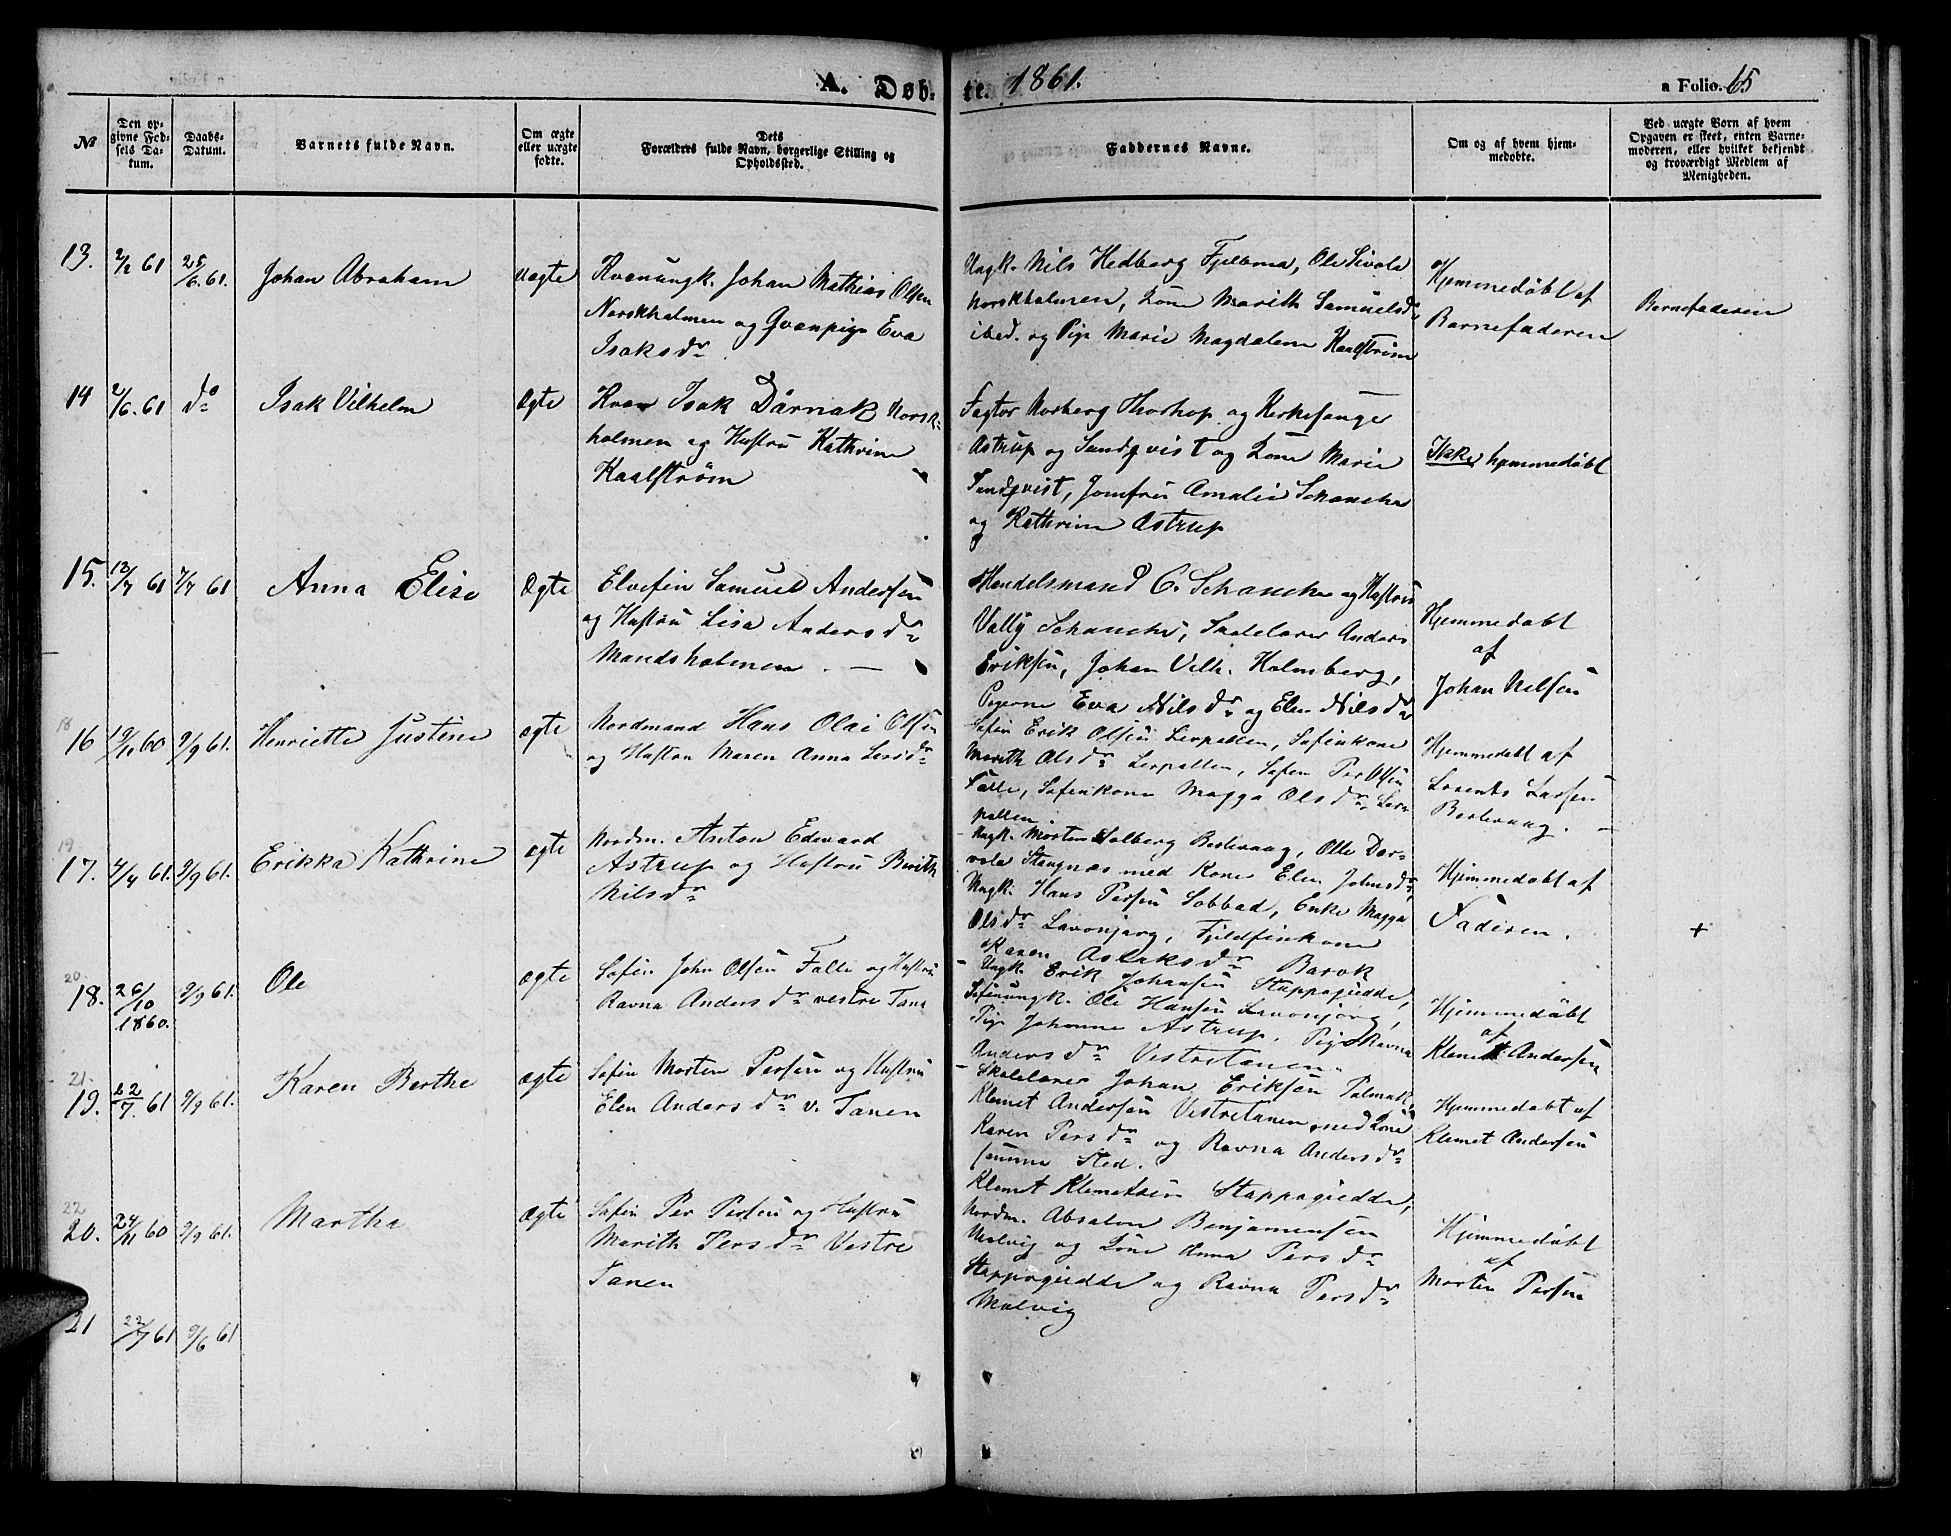 A. Døb-
te. 1861.
a Folio. 65
№
Den op-
givne Fød-
sels Da-
tum.
Daabs-
Datum.
Barnets fulde Navn.
Om ægte
eller uægte
fødte.
Dets
Forældres fulde Navn, borgerlige Stilling og
Opholdssted.
Faddernes Navne.
Om og af hvem hjem-
medøbte.
Ved uægte Børn af hvem
Opgaven er skeet, enten Barne-
moderen, eller hvilket bekjendt
og troværdigt Medlem af
Menigheden.
13.
2/2 61
25/6. 61.
Johan Abraham
uægte
Kvænungk. Johan Mathias Olsen
Norskholmen og Qvænpige Eva
Isaksdr
Ungk. Nils Hedberg Fjelbma, Ole Sivola
Norskholmen, Kone Marith Samuelsdr
ibed. og Pige Marie Magdalena Kaalstrøm
Hjemmedøbt af
Barnefaderen
Barnefaderen
14
2/6. 61
do
Isak Vilhelm
Ægte
Kvæn Isak Dårnak Norsk-
holmen og Hustru Kathrine
Kaalstrøm
Fagtor Norberg Thorhop og Kirkesanger
Astrup og Sundqvist og Kone Marie
Sundqvist, Jomfru Amalie Schanche
og Kathrine Astrup
Ikke hjemmedøbt
15.
13/7 61
7/7 61
Anna Elise
Ægte
Elvefin Samuel Andersen
og Hustru Lisa Andersdr
Mandsholmen. —
Handelsmand C. Schanche og Hustru
Vally Schanche, Skolelærer Anders
Eriksen, Johan Vilh. Holmberg,
Pigerne Eva Nilsdr og Elen Nilsdr
Hjemmedøbt
af
Johan Nilsen
18
16
19/11 60
9/9 61.
Henriette Justine
ægte
Nordmand Hans Olai Olsen
og Hustru Maren Anna Larsdr
Søfin Erik Olsen Lerpollen, Søfinkone
Marith Olsdr Lerpollen, Søfin Per Olsen
Falle, Søfinkone Magga Olsdr, Ler-
pollen.
Hjemmedøbt af
Lorents Larsen
Berlevaag. —
19
17.
4/4 61.
9/9 61.
Erikka Kathrine
ægte
Nordm. Anton Edevard
Astrup og Hustru Berith
Nilsdr
— Ungk. Morten Solberg Berlevaag, Olle Dar-
vola Stangnæs med Kone Elen Johnsdr,
Ungk. Hans Persen Sobbad, Enke Magga
Olsdr Lavonjarg, Fjeldfinkone
Karen Aslaksdr Barok
Hjemmedøbt af
Faderen.
+
20.
18.
26/10
1860.
9/9 61.
Ole
ægte
Søfin John Olsen Falle og Hustru
Ravna Andersdr vestre Tana
— Ungk. Erik Johansen Stappogiedde,
Søfinungk. Ole Hansen Lavonjarg,
Pige Johanne Astrup, Pige Ravna
Andersdr Vestretanen.
Hjemmedøbt
af
Klemet Andersen
21.
19.
22/7 61
9/9 61.
Karen Berthe
ægte
Søfin Morten Persen og Hustru
Elen Andersdr v. Tanen
— Skolelærer Johan Eriksen Polmak,
Klemet Andersen Vestretanen med Kone
Karen Persdr og Ravna Andersdr
samme Sted.
Hjemmedøbt af
Klemet Andersen
22
20.
24/11 60
9/9 61.
Martha
Ægte
Søfin Per Persen og Hustru
Marith Persdr Vestre
Tanen
Klemet Klemetsen Stappogiedde,
Nordm. Absalon Benjaminsen
Molvig og Kone Anna Persdr
Stappogiedde og Ravna Persdr
Molvig
Hjemmedøbt
af
Morten Persen
21
22/7 61
9/6 61